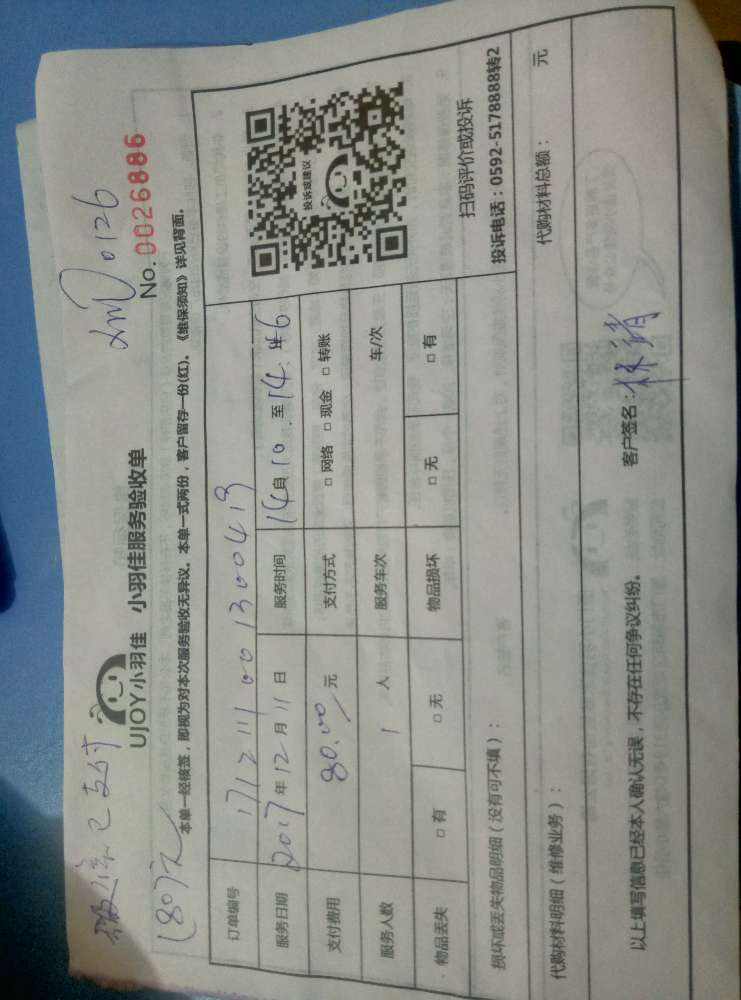 微信已支付
(80元)
UJOY小羽佳 小羽佳服务验收单
No. 0026886
本单一经核签,即视为对本次服务验收无异议。本单一式两份,客户留存一份(红)。《维保须知》详见背面。
订单编号 1712111001300419
服务日期 2017年12月11日 服务时间 14自10.至14.46
支付费用 80.00元 支付方式 □网络 □现金 □转账
服务人数 1人 服务车次 车/次
物品丢失 □有 □无 物品损坏 □无 □有
投诉或建议
扫码评价或投诉
投诉电话:0592-5178888转2
损坏或丢失物品明细(没有可不填):
代购材料明细(维修业务): 代购材料总额: 元
以上填写信息已经本人确认无误,不存在任何争议纠纷。 客户签名:林靖